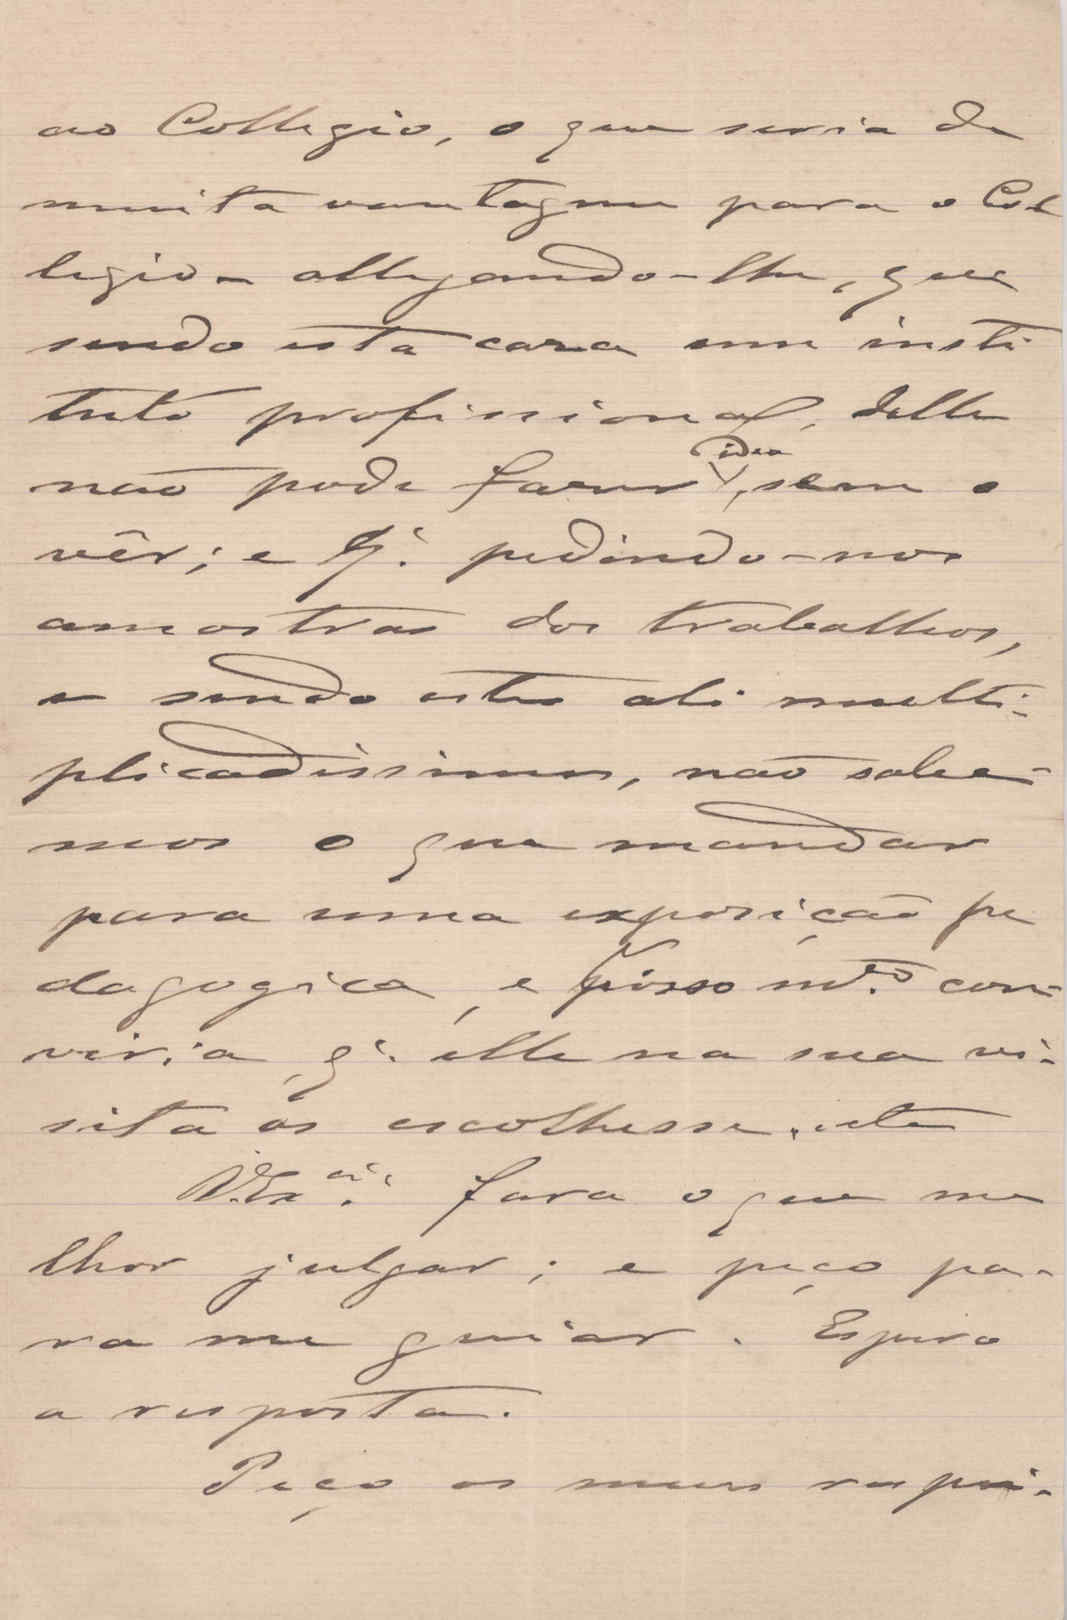 ao Collegio, o que seria de
muita vantagem para o Col
legio - allegando-lhe, que
sendo esta casa um insti-
tuto profissional, delle
não pode fazer idea, sem o
vêr; e q'. pedindo-nos
amostras dos trabalhos,
e sendo estes ali multi-
plicadissimos, não sabe-
mos o que mandar
para uma exposição pe
dagogica, e por isso m.to con-
viria, q'. elle na sua vi-
sita os escolhesse. etc
V. Ex.cia fara o que me
lhor julgar; e peço pa-
ra me guiar. Espero
a resposta.
Peço os meus respei-